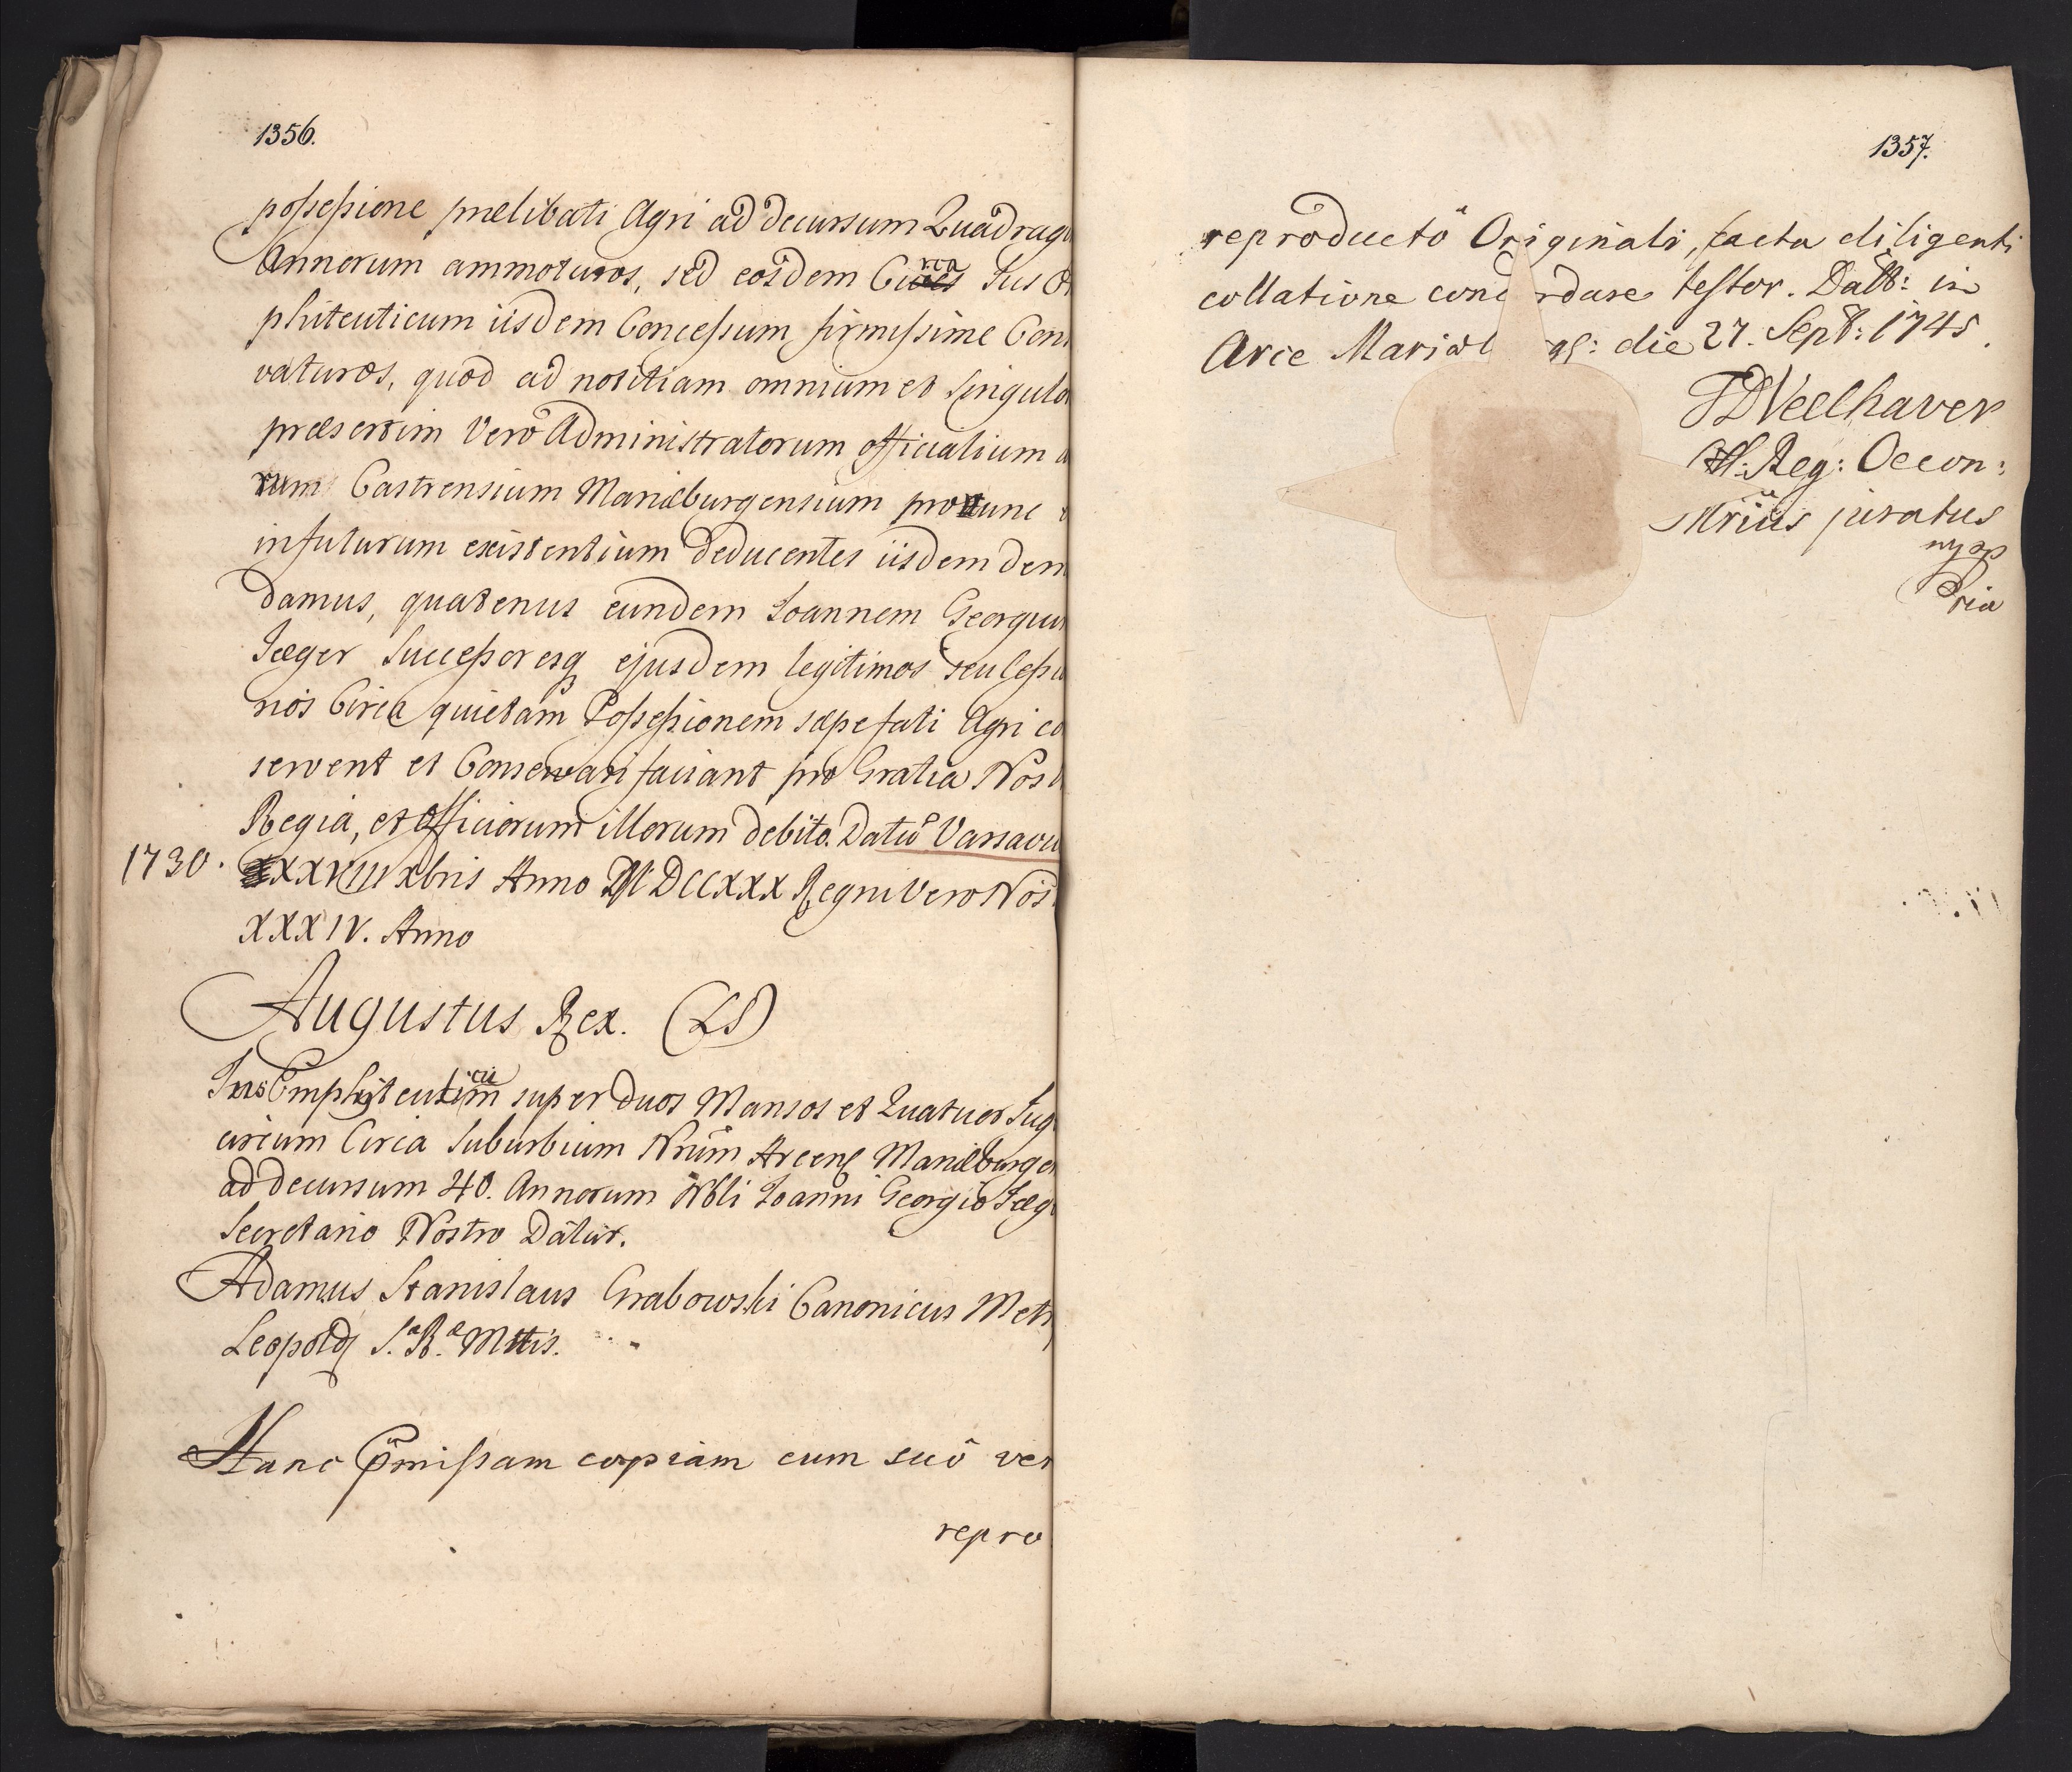 1356.
possessione prælibati Agri ad decursum Quadrag
Annorum ammoturos, sed eosdem Circa Jus
phiteuticum iisdem Concessum firmissime Con
vaturos, quod ad notitiam omnium et Singulo
præsertim Vero Administratorum officialium
rum Castrensium Mariæburgensium pro tunc
infuturum existentium deducentes iisdem
damus, quatenus eundem Joannem Georgiu
Jæger Successoresq ejusdem legitimos seu Cessio
nõs Circa quietam Possessionem sæpefati Agri co
servent et Conservari faciant pro Gratia Nos
Regia, et officiorum illorum debito. Datu Varsavi
1730. XXXVIII Xbris Anno MDCCXXX Regni Vero Nos
XXXIV. Anno
Augustus Rex. (LS)
Jus Emphyteuticũ super duos Mansos et Quatuor Jug
circum Circa Suburbium Nrũm Arcens Mariæburge
ad decursum 40. Annorum Nbli Joanni Georgio Jæg
Secretario Nostro Datur.
Adamus Stanislaus Grabowski Canonicus Metr
Leopold S. R. Mttis.
Hanc præmissam copiam cum suô ver
repro
1357.
reproductô Originali, facta diligenti
collatione concordare testor. Datt: in
Arce Mariæb gs: die 27. Sept: 1745.
Veelhaver
Reg: Oecon:
Nrius juratus
mpp
Pria